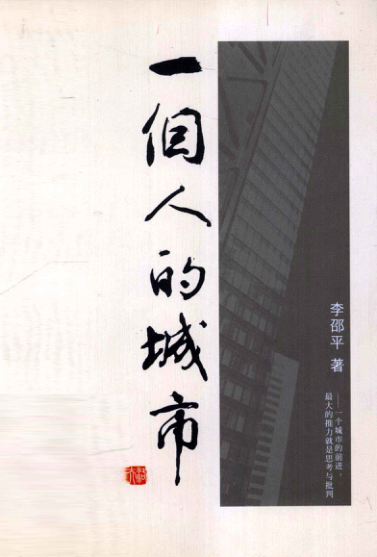 一個人的城市
李邵平 著
——一个城市的前进，
最大的推力就是思考与批判